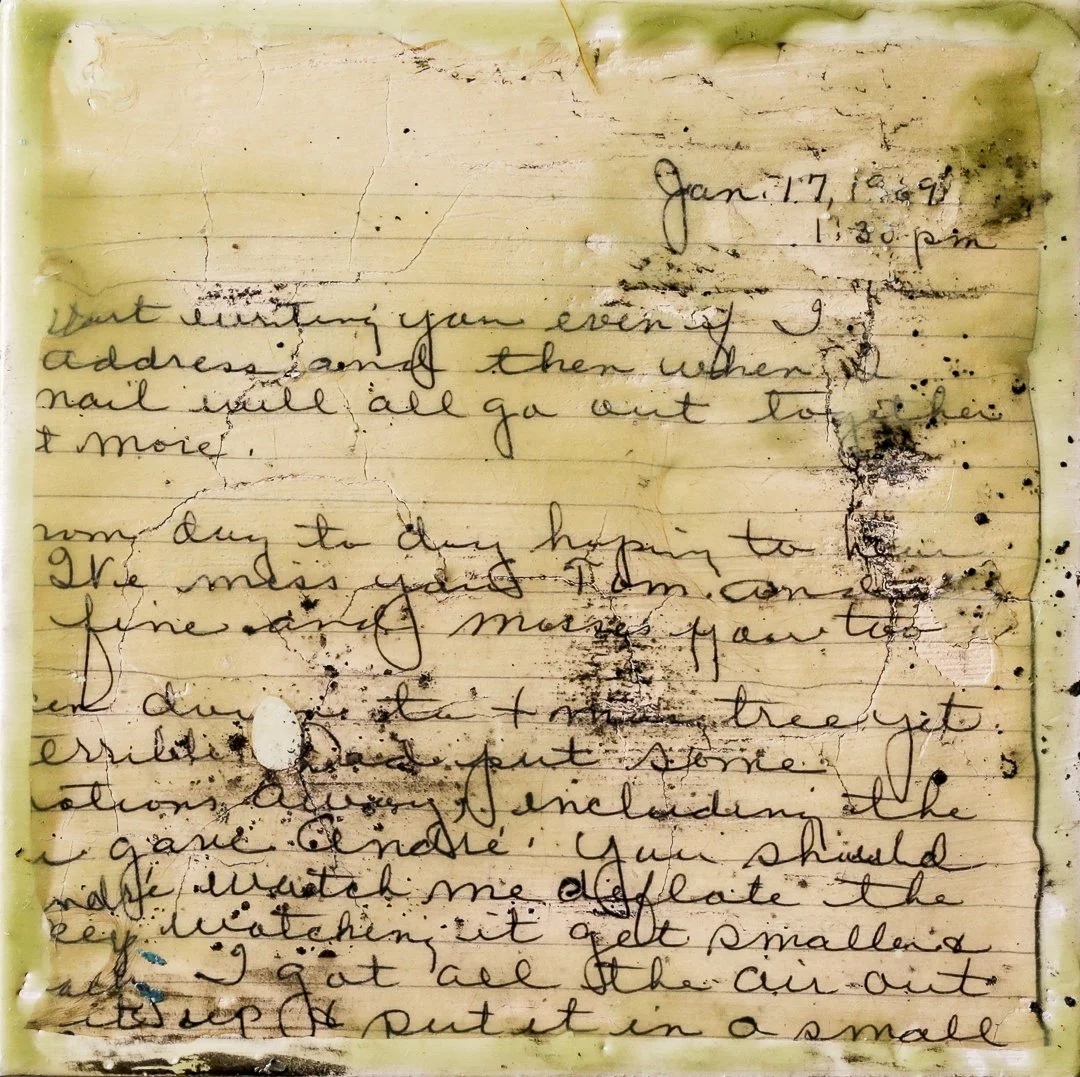 Jan. 17, 1969
1:30 pm
start writing you even if I
address and then when I
mail will all go out together
t more.
rom day to day hoping to hear
I've miss you Tom. and
fine and misses you too
en down ta tree yet
errible. Dad put some
ations away, including the
u gave André. You should
ndré watch me deflate the
key watching it get smaller &
I got all the air out
it up & put it in a small